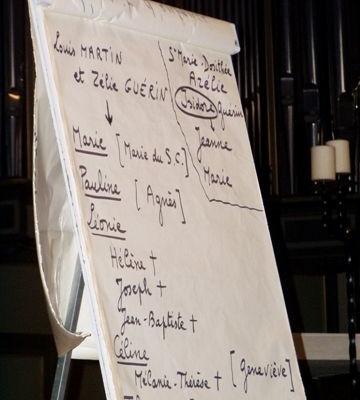 Louis MARTIN
et Zélie GUÉRIN
Marie [Marie du S.C.]
Pauline [Agnès]
Léonie
Hélène +
Joseph +
Jean-Baptiste +
Céline [Geneviève]
Mélanie-Thérèse +
Sr Marie-Dorothée
Azélie
Isidore Guérin
Jeanne
Marie